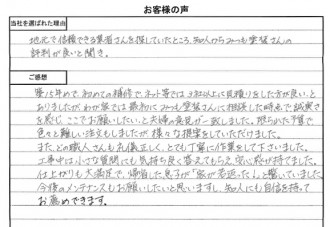 お客様の声
当社を選ばれた理由
地元で信頼できる業者さんを探していたところ、知人からみつも塗装さんの
評判が良いと聞き。
ご感想
築15年めで、初めての補修で、ネット等では3社以上に見積りをした方が良い、と
ありましたが、わが家では最初にみつも塗装さんに相談した時点で誠実さ
を感じ、ここでお願いしたい、と夫婦の意見が一致しました。限られた予算で
色々と難しい注文もしましたが、様々な提案をしていただけました。
また、どの職人さんも礼儀正しく、とても丁寧に作業をして下さいました。
工事中は小さな質問にも気持ち良く答えてもらえ、安心感が持てました。
仕上がりも大満足で、帰省した息子が「家が若返った」と驚いていました。
今後のメンテナンスもお願いしたいと思いますし、知人にも自信を持って
お薦めできます。